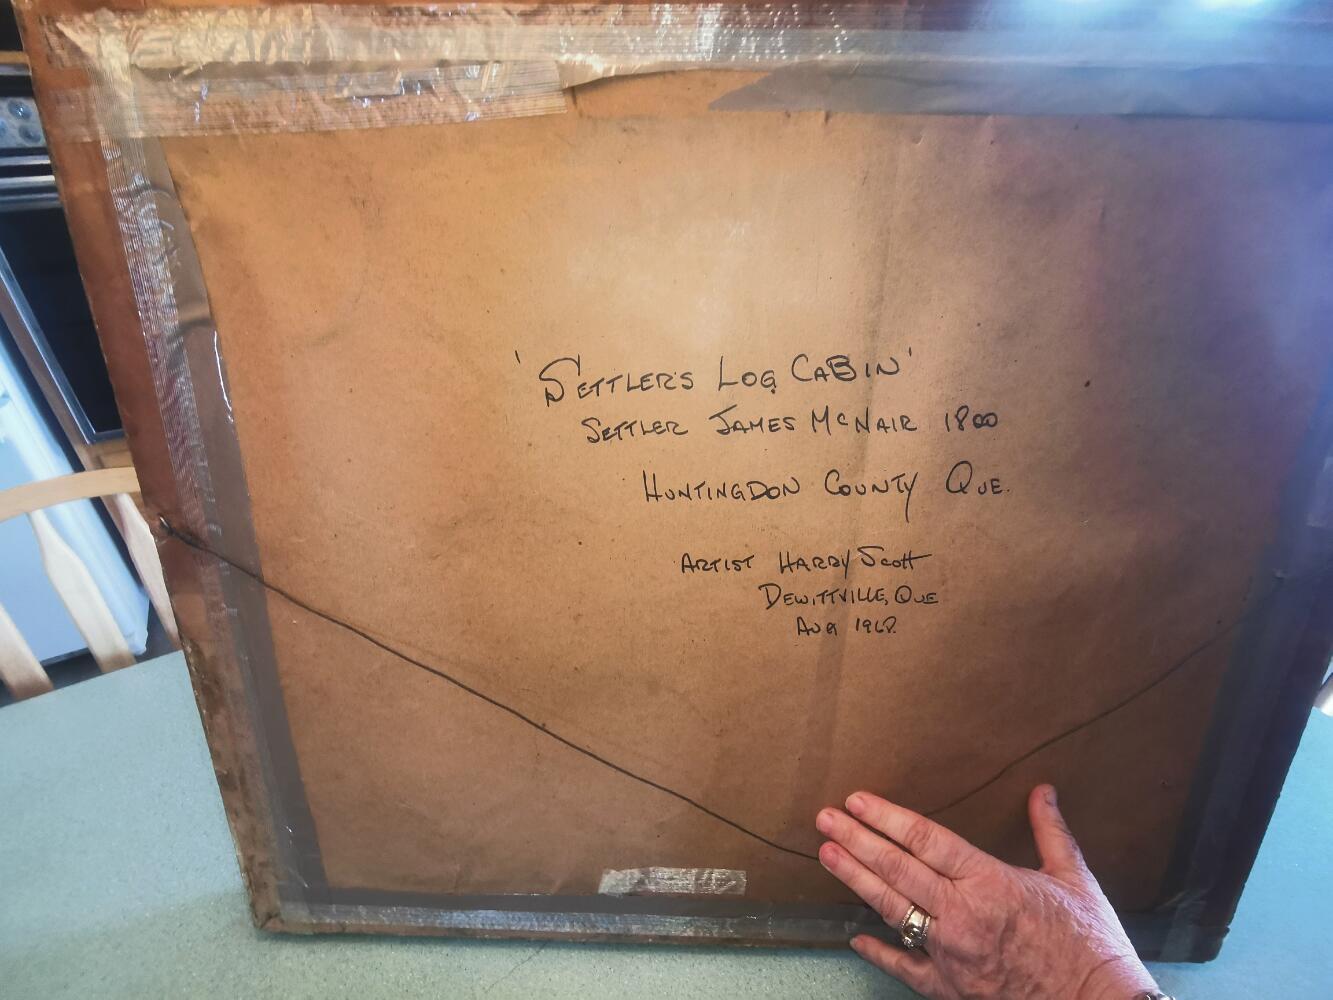 'Settler's Log Cabin'
Settler James McNair 1800
Huntingdon County Que.
Artist Harry Scott
Dewittville, Que
Aug 1968.